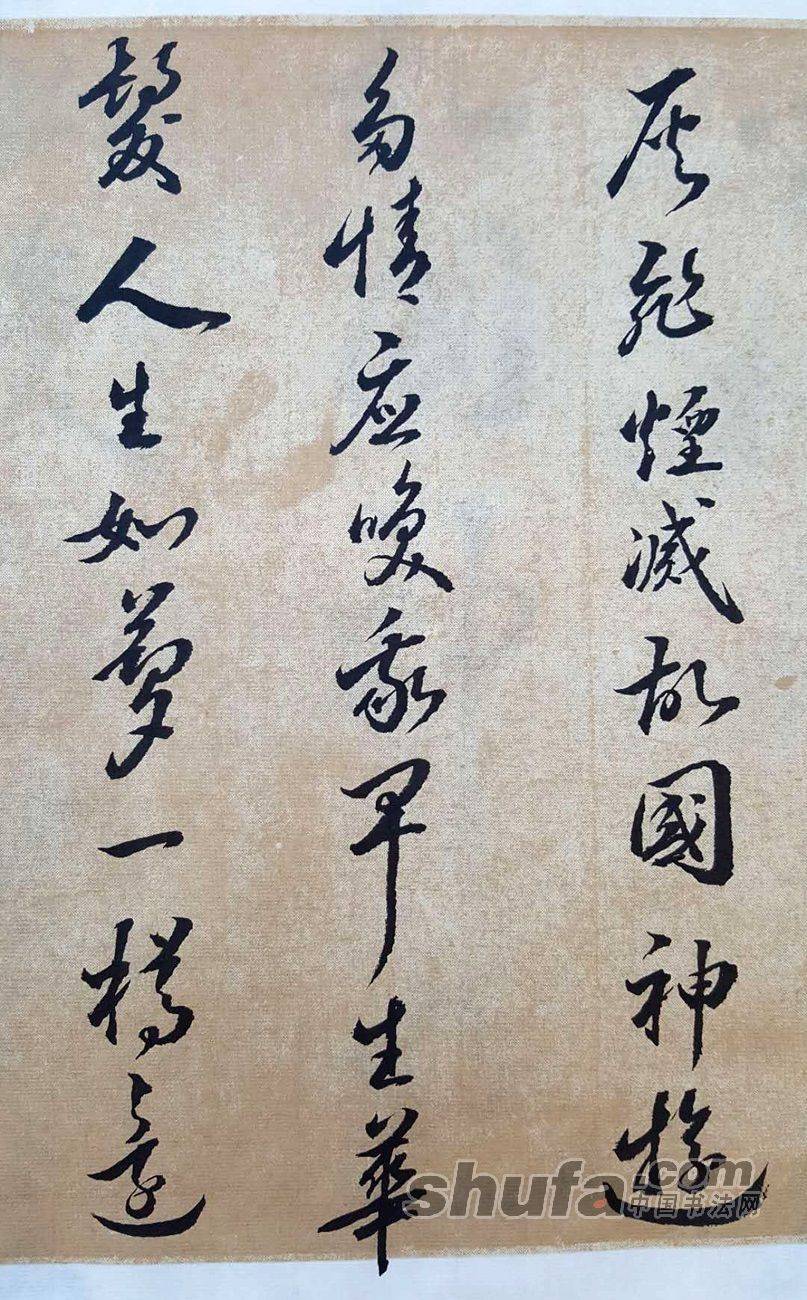 灰飛煙滅故國神遊
多情应喚我早生華
髮人生如夢一樽還
shufa.com
中国书法网